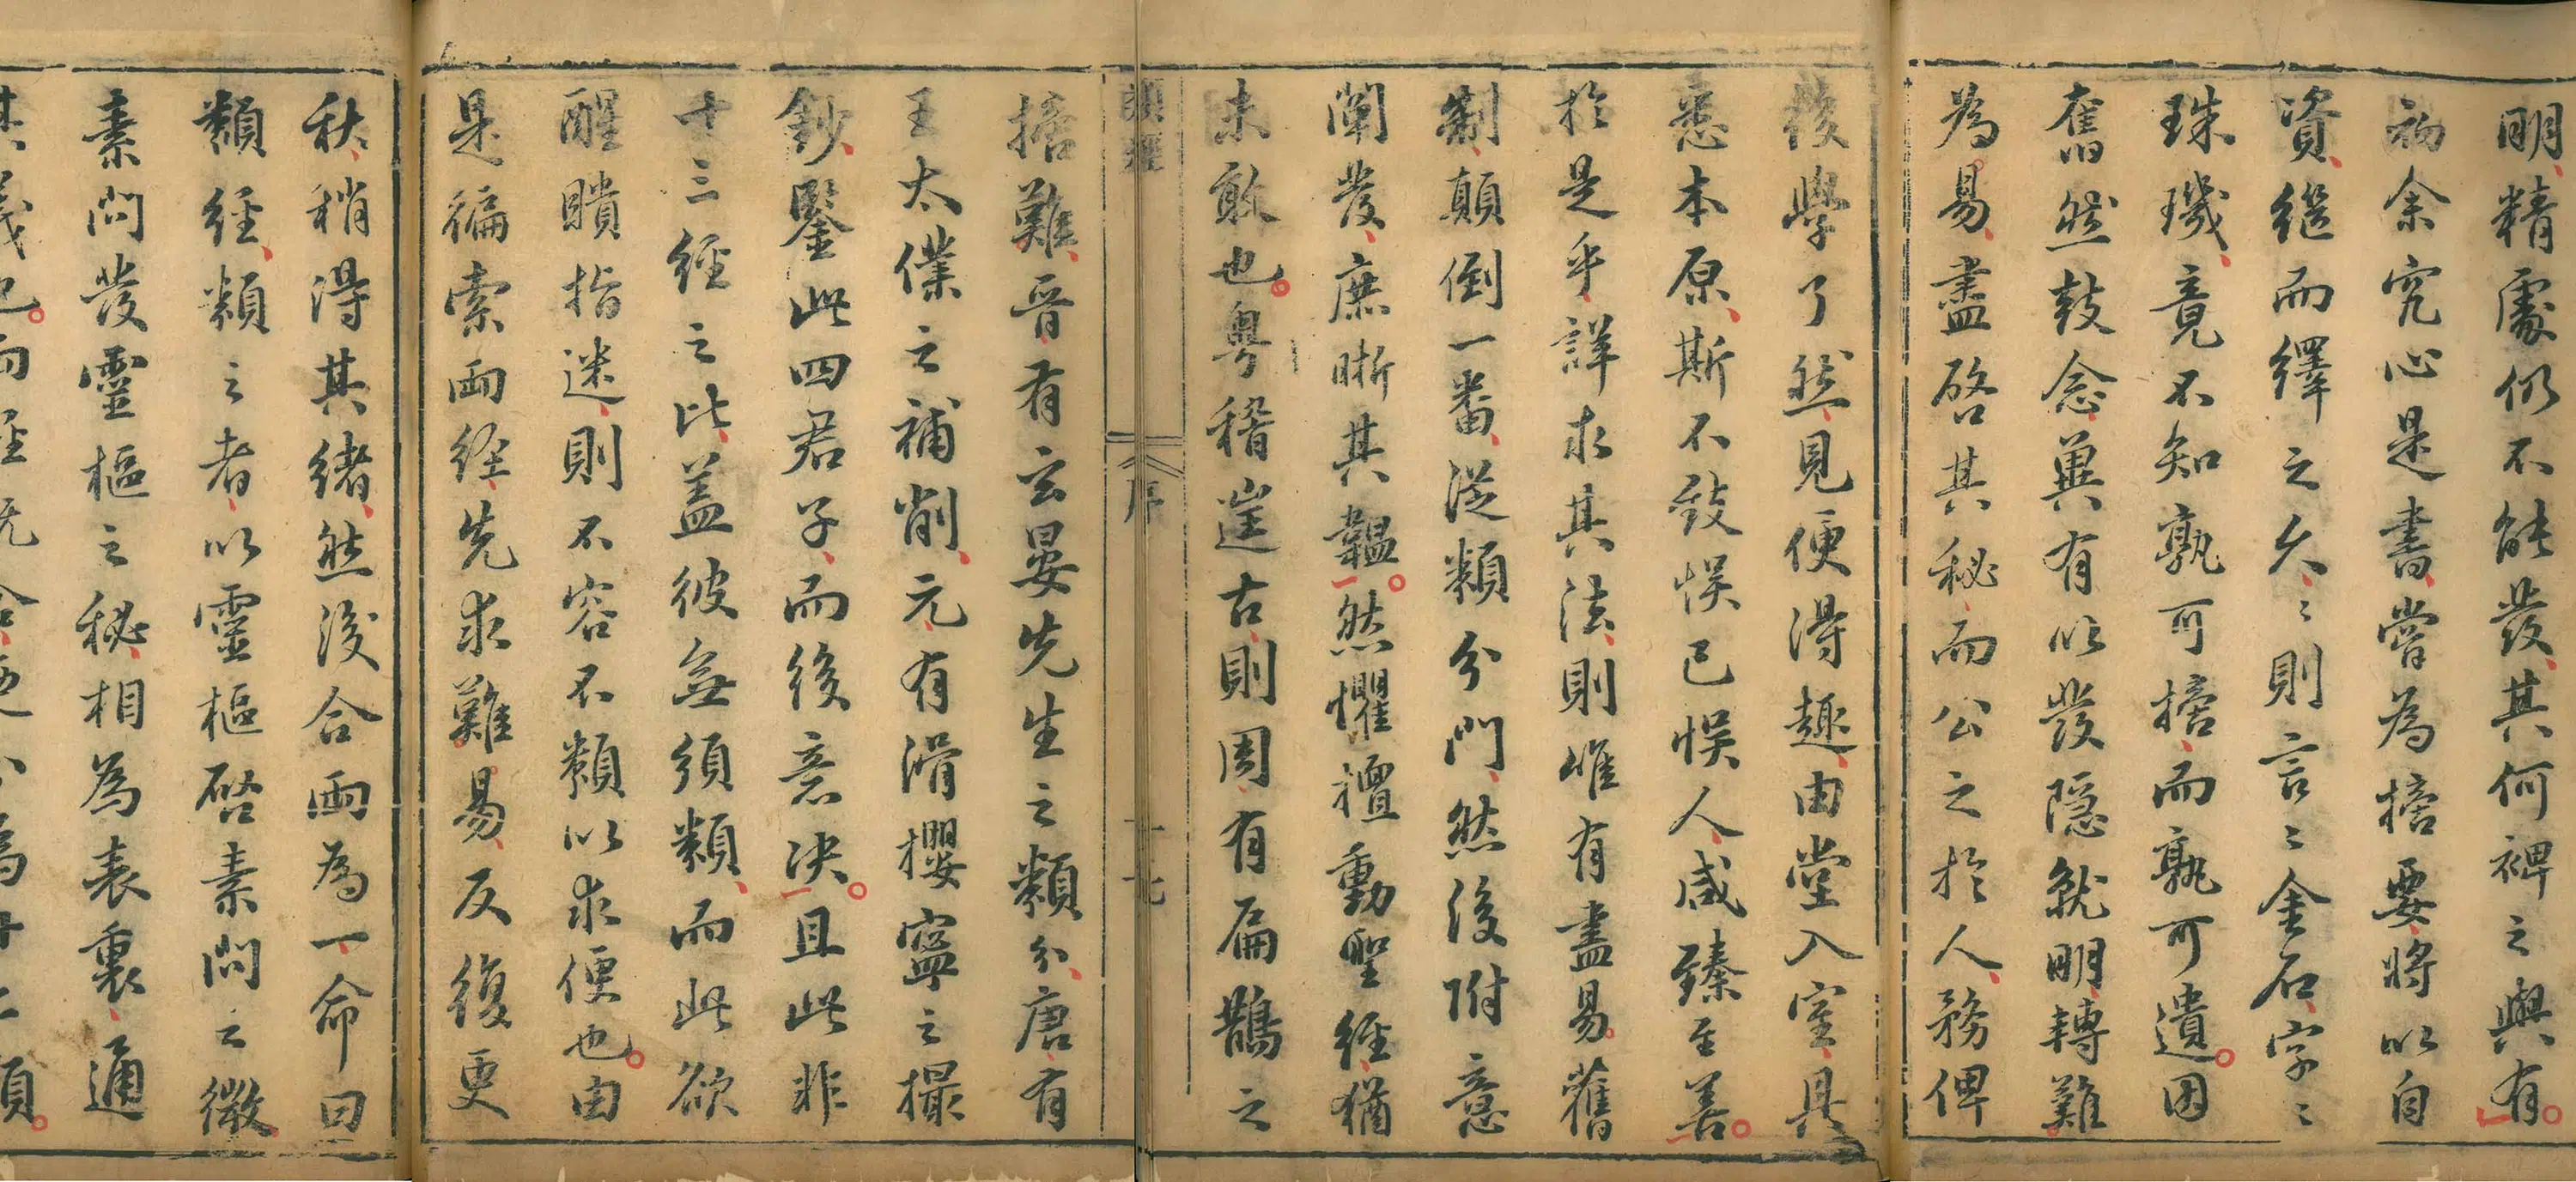 明精處仍不能發其何裨之與有
初余究心是書嘗為摘要將以自
資繼而繹之久〻則言〻金石字〻
珠璣竟不知孰可摘而孰可遺因
奮然鼓念冀有以發隱就明轉難
為易盡啓其秘而公之於人務俾
後學了然見便得趣由堂入室具
悉本原斯不致悞己悞人咸臻至善
於是乎詳求其法則唯有盡易舊
制顛倒一番從類分門然後附意
闡發庶晰其韞然懼擅動聖經猶
未敢也粵稽往古則周有扁鵲之
類經
序
十七
摘難晉有玄晏先生之類分唐有
王太僕之補削元有滑攖寧之撮
鈔鑒此四君子而後意決且此非
十三經之比蓋彼無須類而此欲
醒瞶指迷則不容不類以求便也由
是徧索兩經先求難易反復更
秋稍得其緒然後合兩為一命曰
類經類之者以靈樞啓素問之微
素問發靈樞之秘相為表裏通
其義也